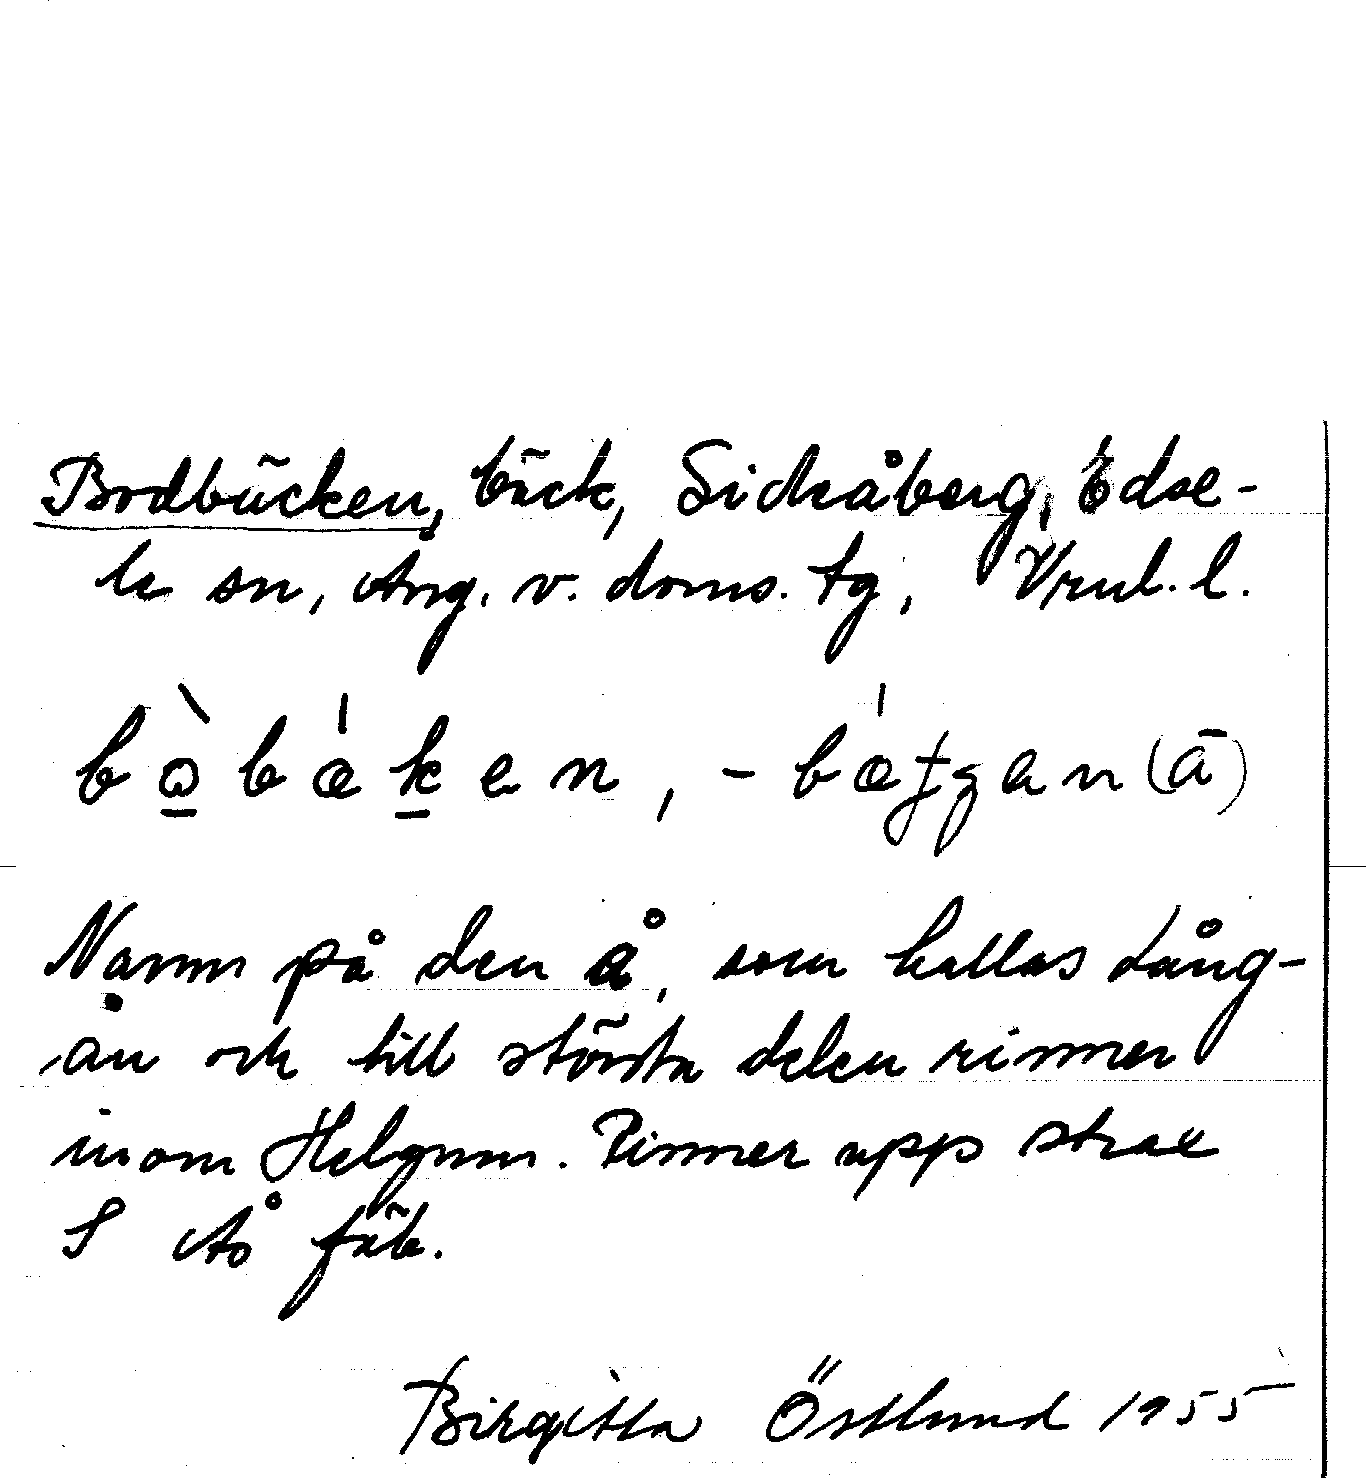 Bodbäcken, bäck, Sidsåberg, Edse-
le sn, Ång. v. doms. tg, Vnul. l.
bo̱bæḵen, -
Namn på den å, som kallas Lång-
ån och till största delen rinner
inom Helgum. Rinner upp strax
S Ås fäb.
Birgitta Östlund 1955